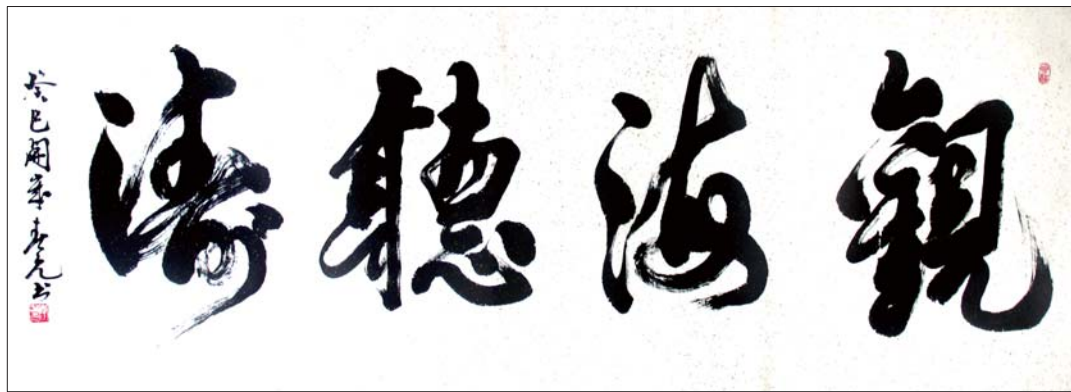 觀海聽濤
癸巳開歲春元書